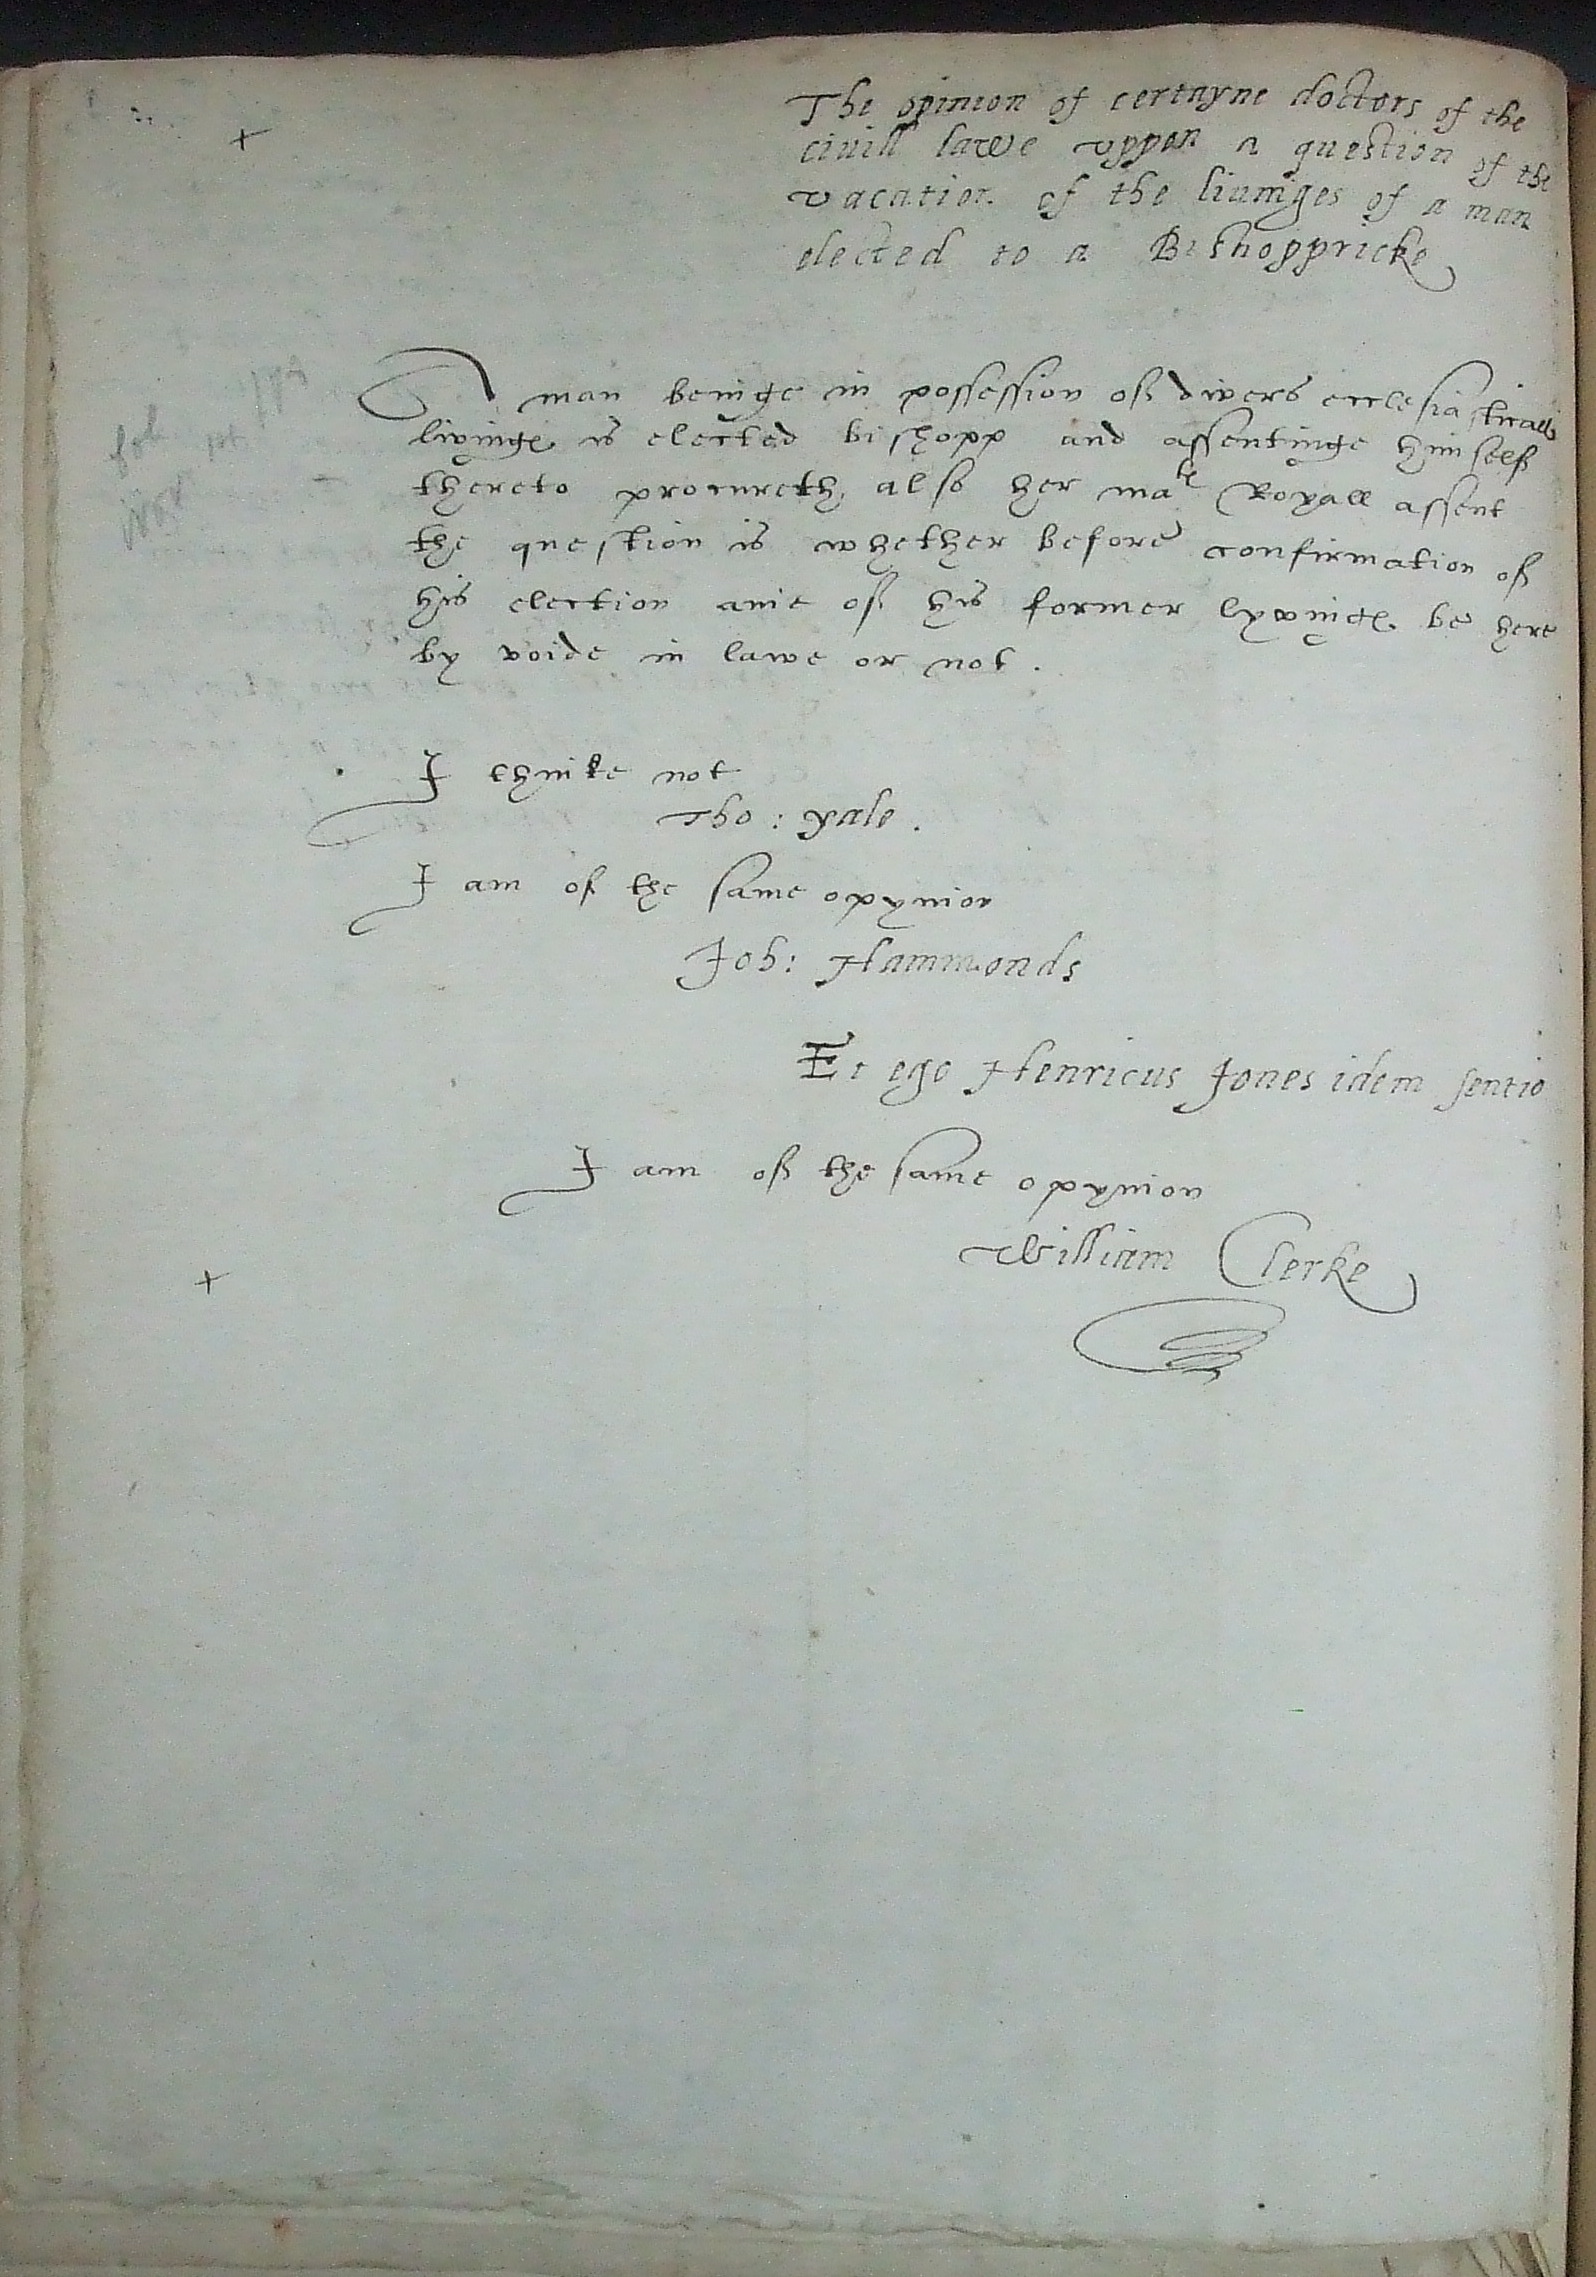 The opinion of certayne doctors of the
civill lawe uppon a question of the
vacation of the livinges of a man
elected to a Bishoppricke
A man beinge in possession off divers ecclesiasticall
livinges is elected bishopp and assentinge himselff
thereto procureth also her matie Royall assent
the question is whether before confirmation off
his election anie off his former lyvinges be here
by voide in lawe or not.
I thinke not
Tho: Yale.
I am of the same opynion
Joh: Hammonds
Et ego Henricus Jones idem sentio
I am off the same opynion
William Clerke